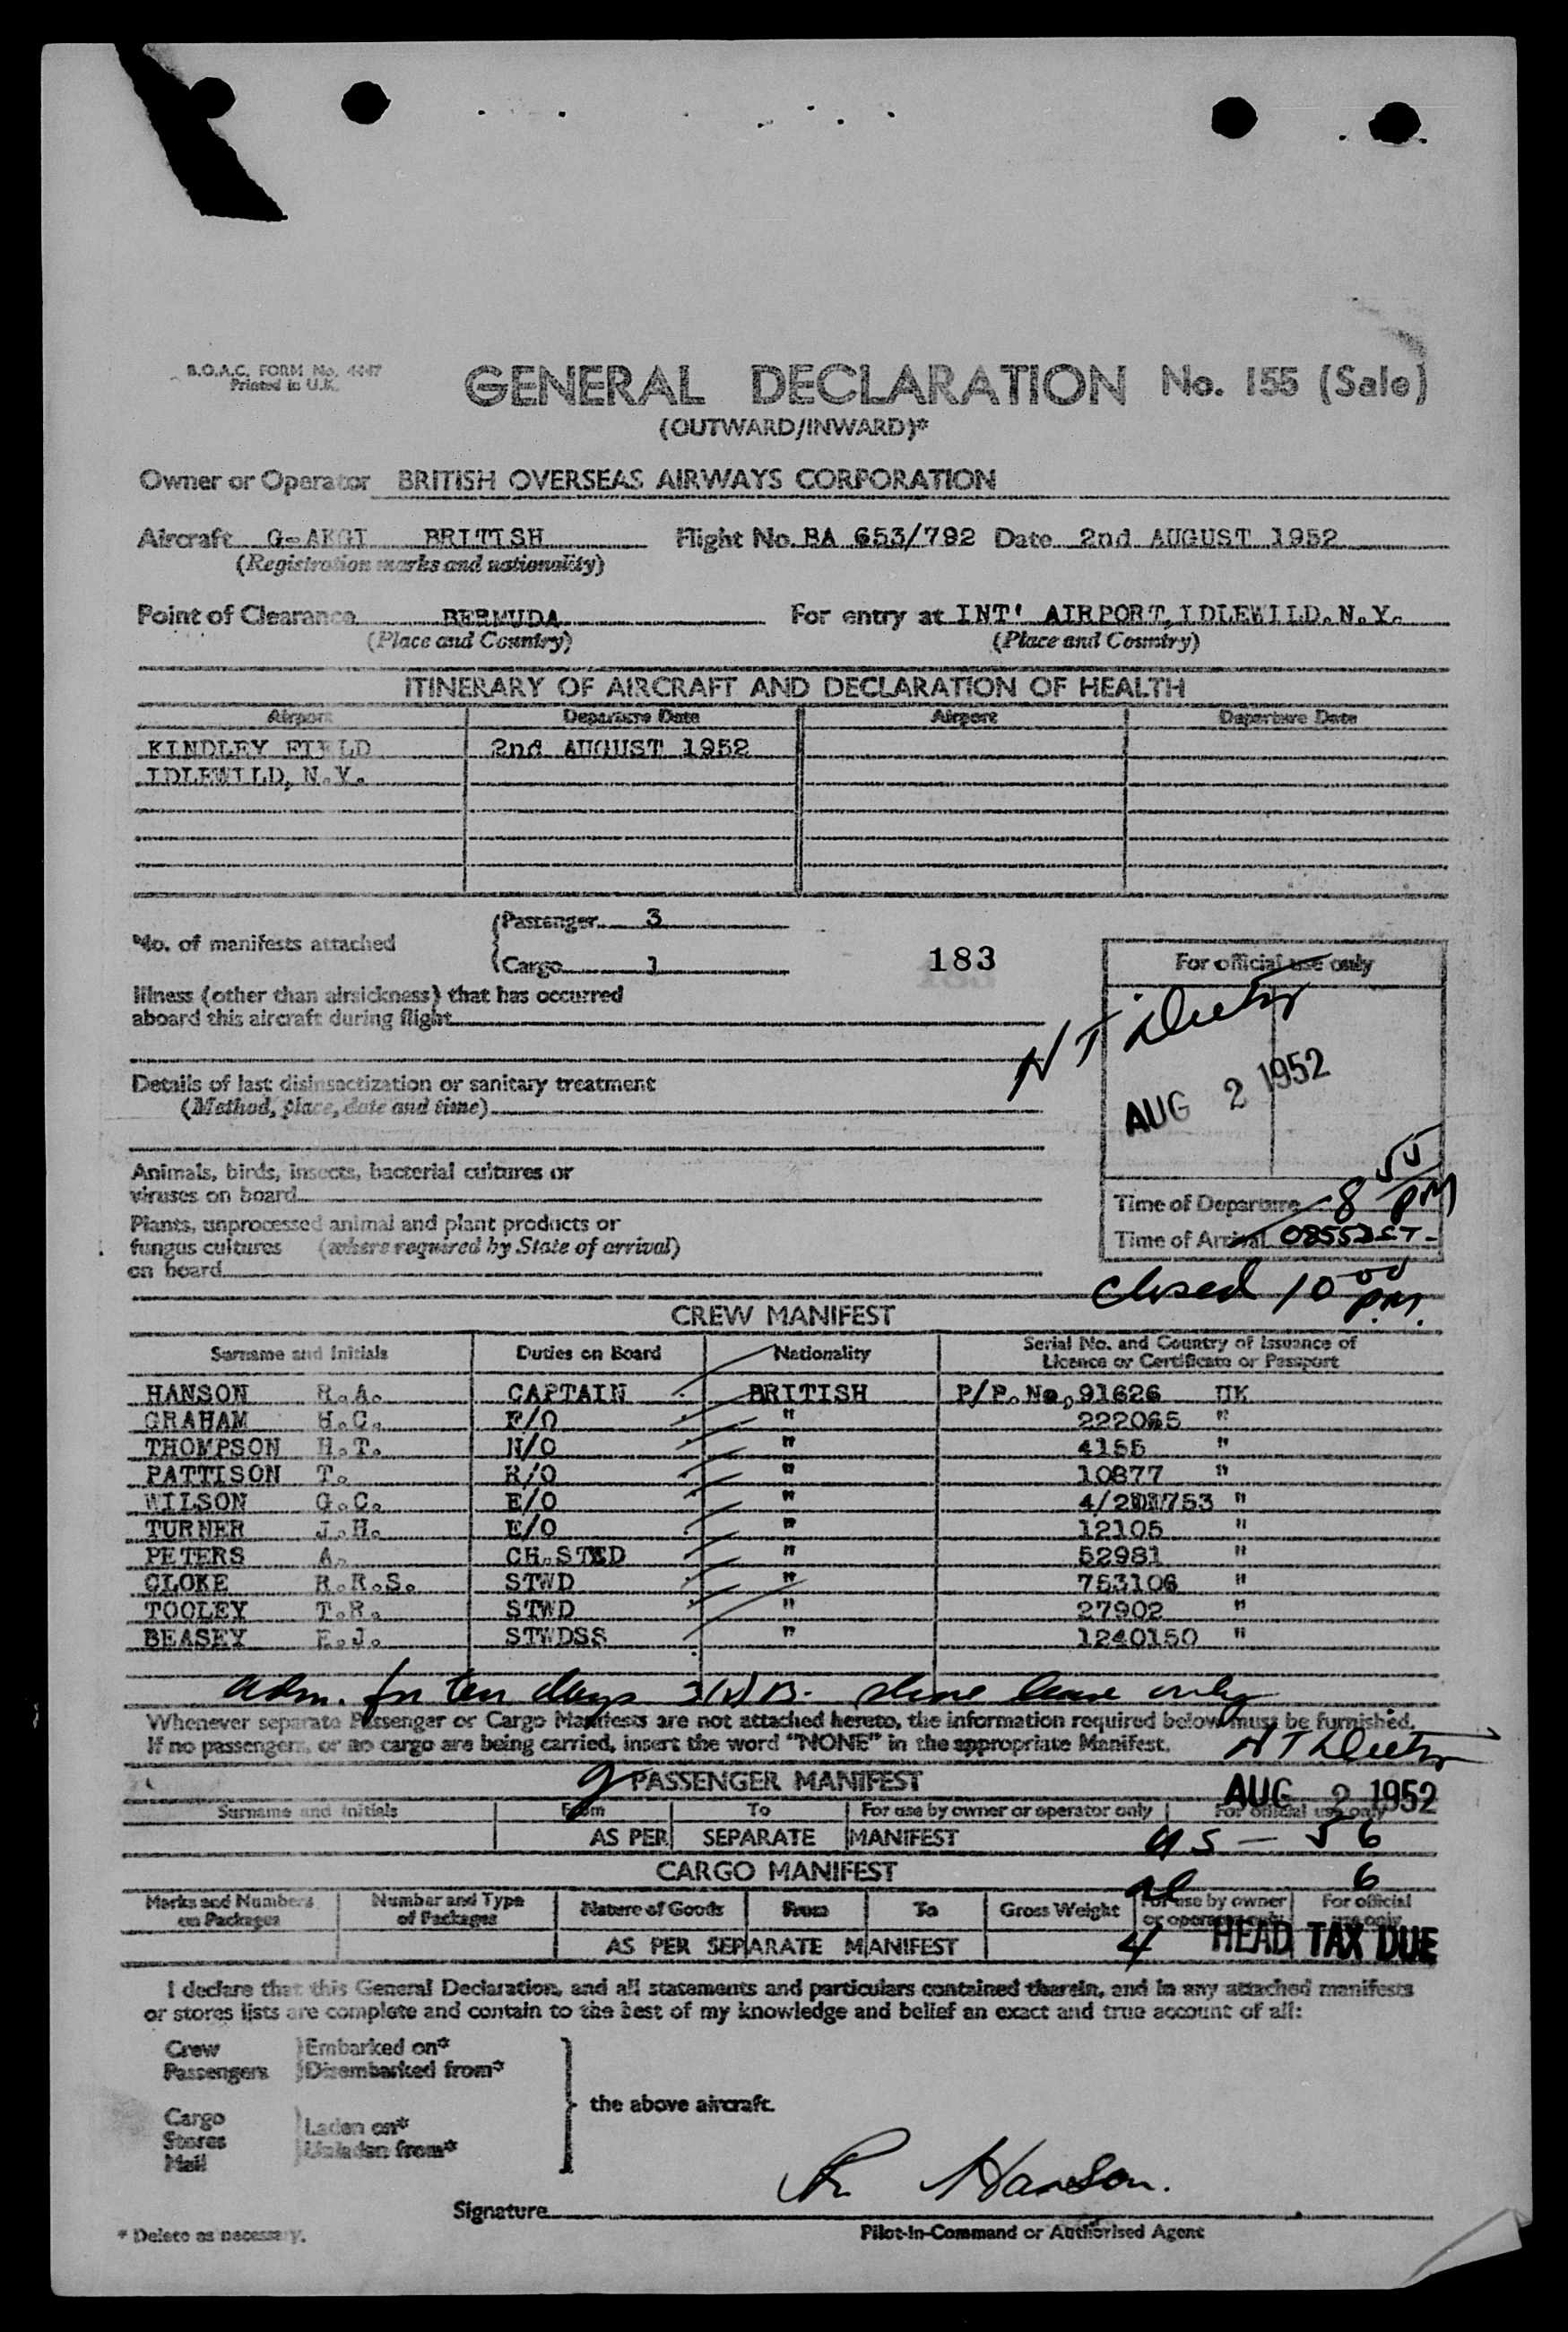 B.O.A.C. FORM No. 4447
Printed in U.K.
GENERAL DECLARATION No. 155 (Sale)
(OUTWARD/INWARD)*
Owner or Operator BRITISH OVERSEAS AIRWAYS CORPORATION
Aircraft BRITISH Flight No. BA 653/792 Date 2nd AUGUST 1952
(Registration marks and nationality)
Point of Clearance BERMUDA For entry at INT' AIRPORT, IDLEWILD. N.Y.
(Place and Country) (Place and Country)
ITINERARY OF AIRCRAFT AND DECLARATION OF HEALTH
Airport Departure Date Airport Departure Date
KINDLEY FIELD 2nd AUGUST 1952
IDLEWILD, N.Y.
No. of manifests attached
Passenger 3
Cargo 1
183
For official use only
Illness (other than airsickness) that has occurred
aboard this aircraft during flight
Details of last disinsectization or sanitary treatment
(Method, place, date and time)
AUG 2 1952
Animals, birds, insects, bacterial cultures or
viruses on board
Plants, unprocessed animal and plant products or
fungus cultures (where required by State of arrival)
on board
Time of Departure 8 PM
Time of Arrival
closed 10 00 P.M.
CREW MANIFEST
Surname and Initials Duties on Board Nationality Serial No. and Country of Issuance of
Licence or Certificate or Passport
HANSON R.A. CAPTAIN BRITISH P/P. No. 91626 UK
GRAHAM H.C. F/O " 222065 "
THOMPSON H.T. N/O " 4155 "
PATTISON T. R/O " 10877 "
WILSON G.C. E/O " "
TURNER J.H. E/O " 12105 "
PETERS A. CH.STWD " 52981 "
CLOKE R.R.S. STWD " 753106 "
TOOLEY T.R. STWD " 27902 "
BEASEY E.J. STWDSS " 1240150 "
adm. for ten days shore leave only
Whenever separate Passenger or Cargo Manifests are not attached hereto, the information required below must be furnished.
If no passengers, or no cargo are being carried, insert the word "NONE" in the appropriate Manifest.
PASSENGER MANIFEST
AUG 2 1952
Surname and Initials From To For use by owner or operator only For official use only
AS PER SEPARATE MANIFEST
US - 56
CARGO MANIFEST
6
Marks and Numbers on Packages Number and Type of Packages Nature of Goods From To Gross Weight For use by owner or operator only For official use only
AS PER SEPARATE MANIFEST
4 HEAD TAX DUE
I declare that this General Declaration, and all statements and particulars contained therein, and in any attached manifests
or stores lists are complete and contain to the best of my knowledge and belief an exact and true account of all:
Crew Embarked on*
Passengers Disembarked from*
the above aircraft.
Cargo Laden on*
Stores Unladen from*
Mail
R Hanson.
Signature
* Delete as necessary. Pilot-in-Command or Authorised Agent